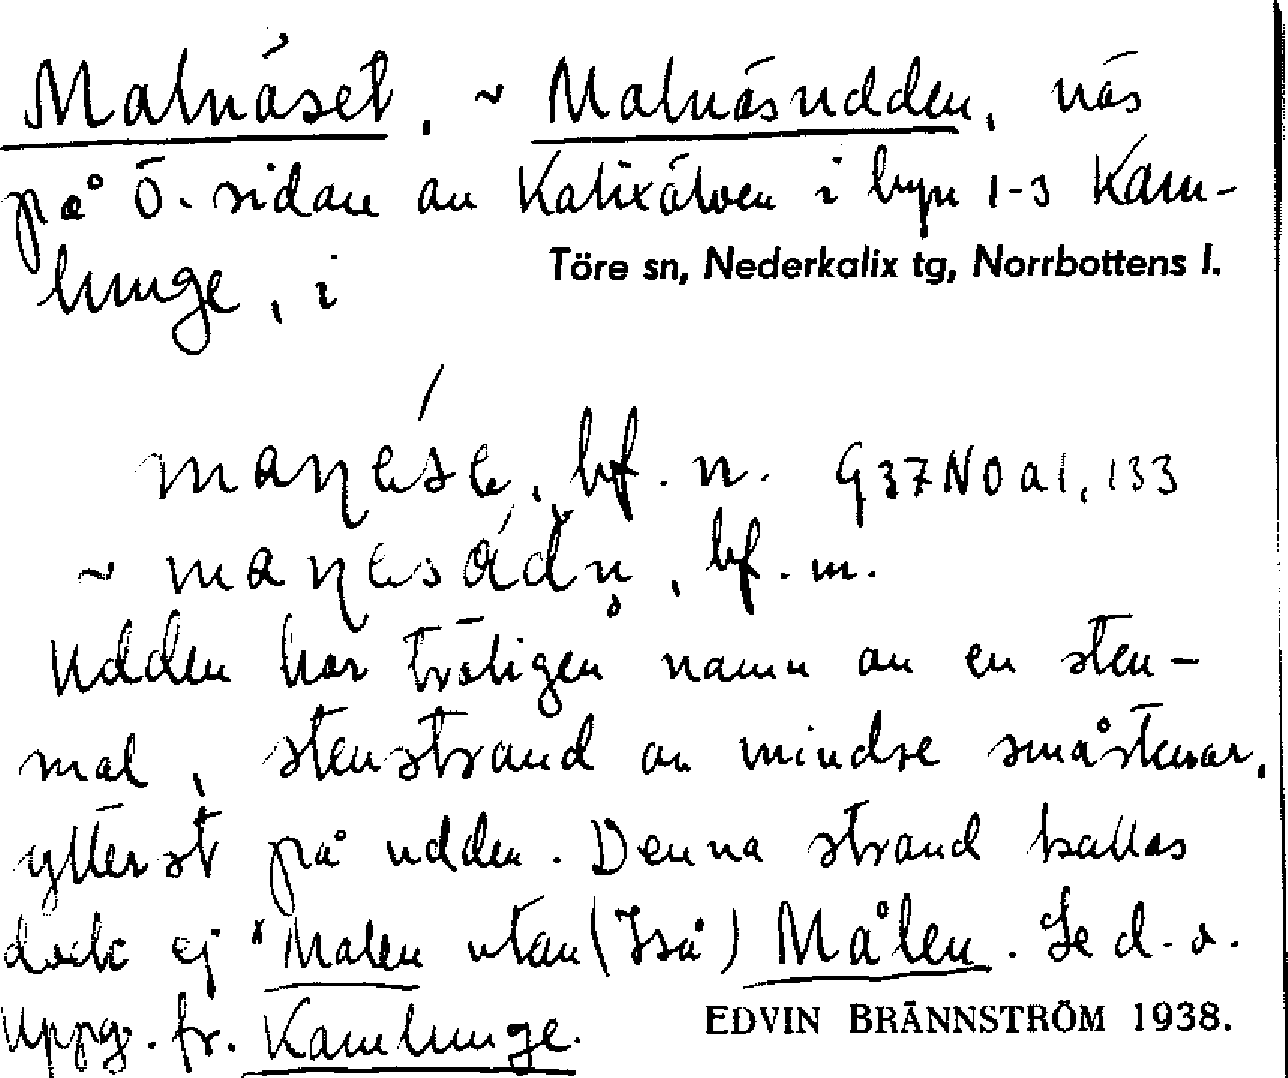 Malnäset, ~ Malnäsudden, näs
på ö. sidan av Kalixälven i byn 1-3 Kam-
lunge, i
Töre sn, Nederkalix tg, Norrbottens l.
bf. n. G37N0a1,133
~ bf. m.
Udden har troligen namn av en sten-
mal, stenstrand av mindre småstenar,
ytterst på udden. Denna strand kallas
dock ej *Malen utan Målen. Se d. o.
Uppg. fr. Kamlunge.
EDVIN BRÄNNSTRÖM 1938.